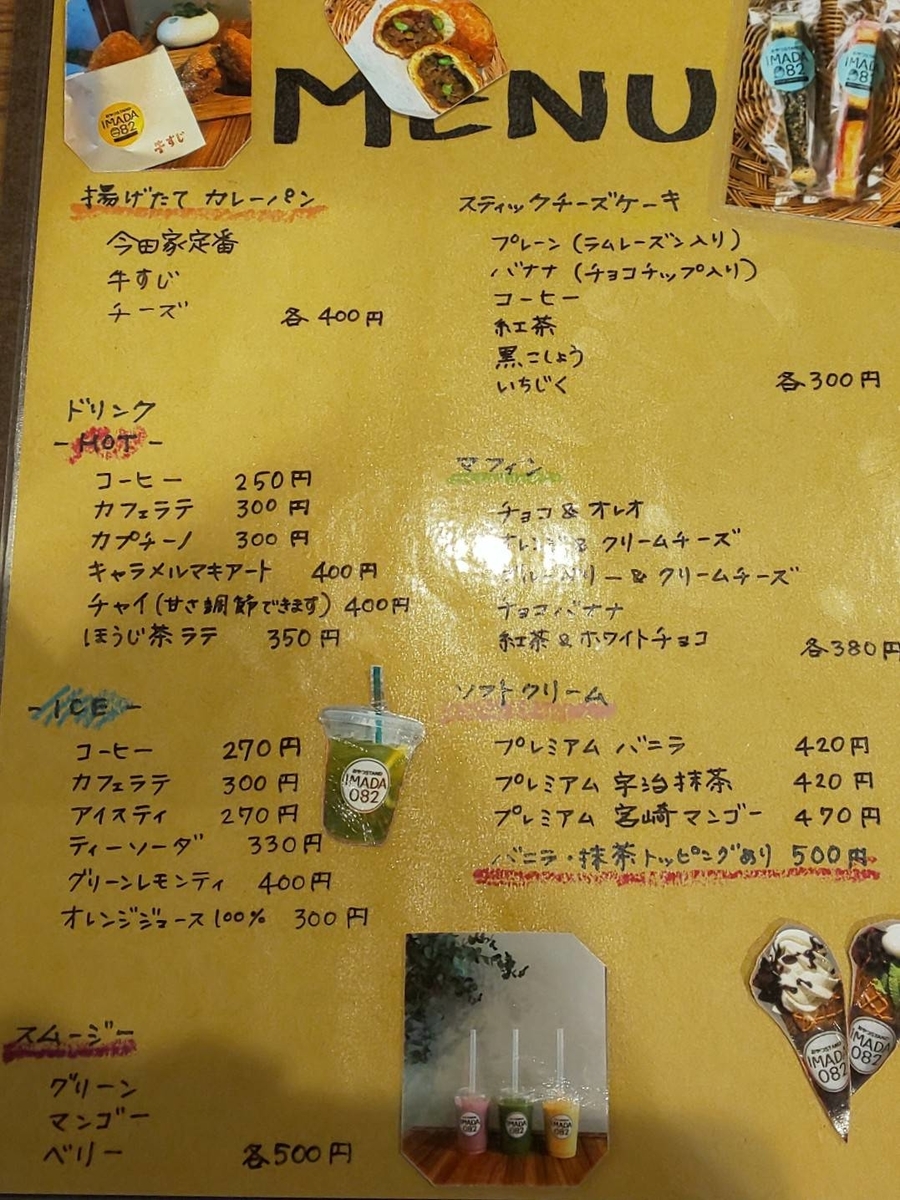 MENU
IMADA
082
牛すじ
IMADA
082
IMADA
082
揚げたて カレーパン
今田家定番
牛すじ
チーズ
各400円
ドリンク
-HOT-
コーヒー 250円
カフェラテ 300円
カプチーノ 300円
キャラメルマキアート 400円
チャイ(甘さ調節できます) 400円
ほうじ茶ラテ 350円
-ICE-
コーヒー 270円
カフェラテ 300円
アイスティ 270円
ティーソーダ 330円
グリーンレモンティ 400円
オレンジジュース100% 300円
IMADA
082
スムージー
グリーン
マンゴー
ベリー
各500円
スティックチーズケーキ
プレーン(ラムレーズン入り)
バナナ(チョコチップ入り)
コーヒー
紅茶
黒こしょう
いちじく
各300円
マフィン
チョコ&オレオ
オレンジ&クリームチーズ
ブルーベリー&クリームチーズ
チョコバナナ
紅茶&ホワイトチョコ
各380円
ソフトクリーム
プレミアム バニラ 420円
プレミアム 宇治抹茶 420円
プレミアム 宮崎マンゴー 470円
バニラ・抹茶トッピングあり 500円
IMADA
082
IMADA
082